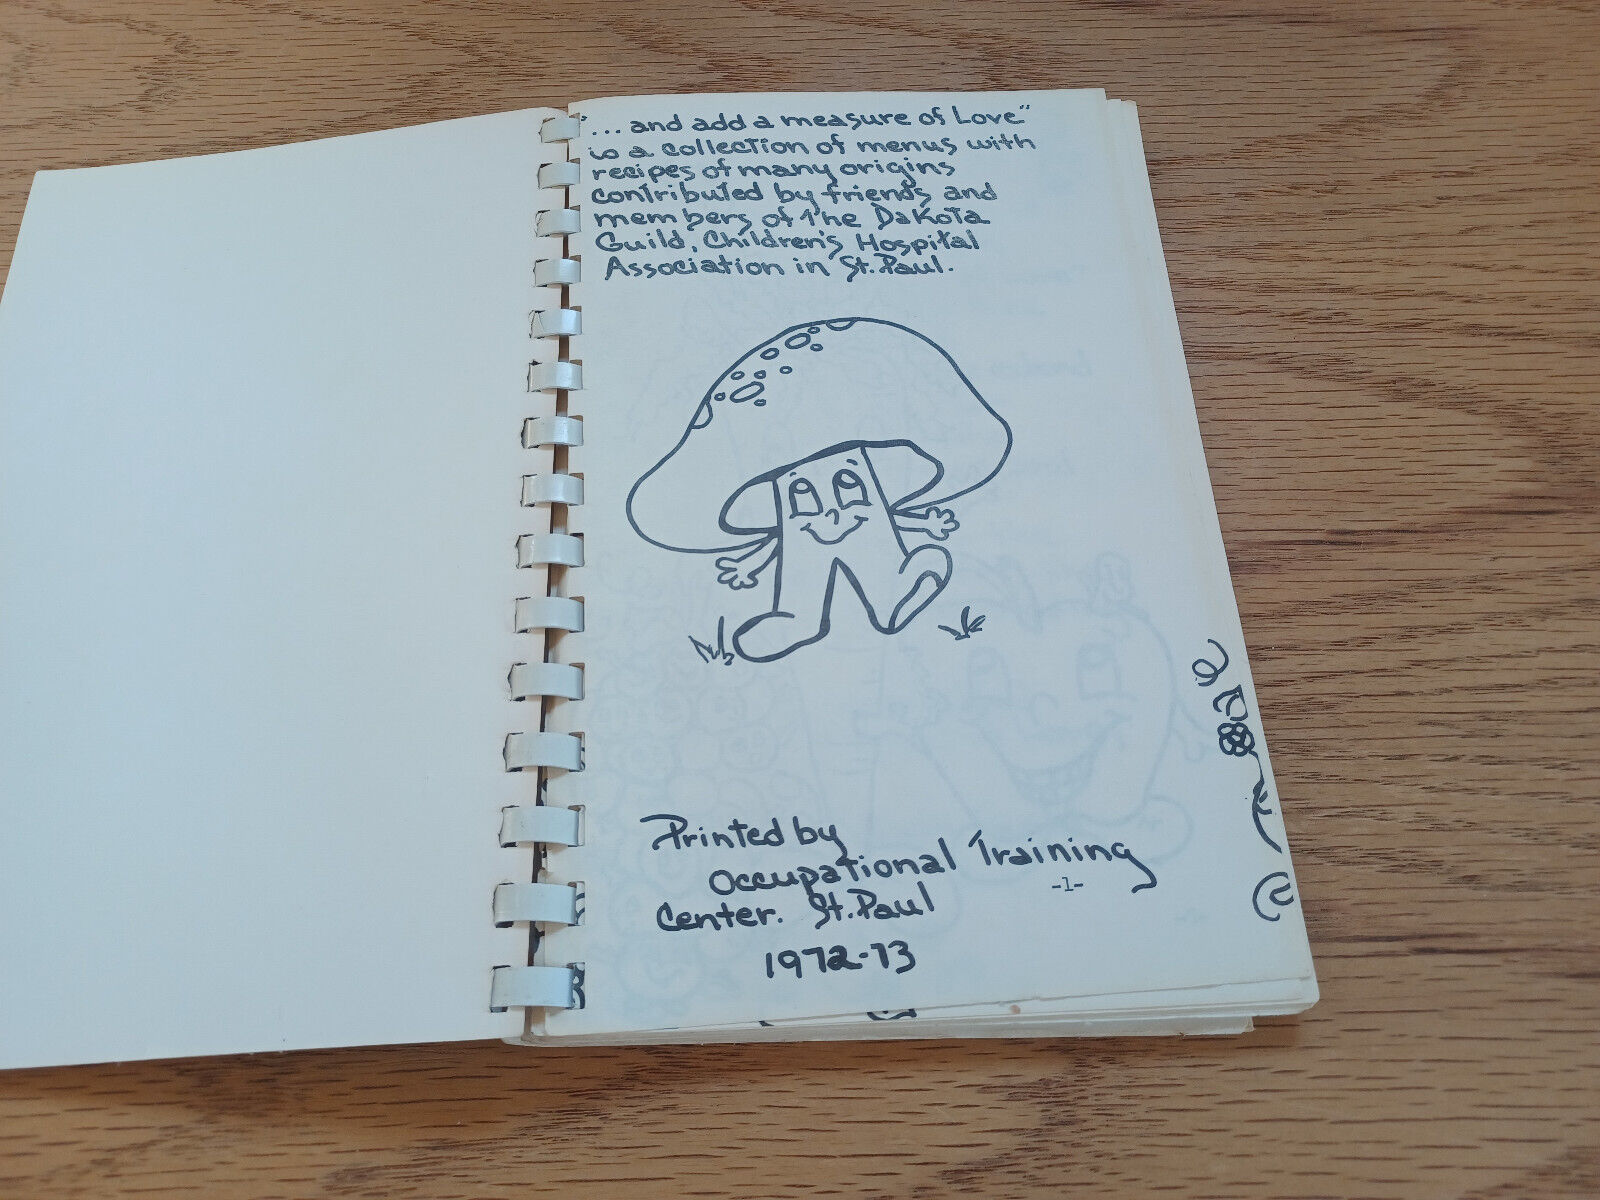 "... and add a measure of Love"
is a collection of menus with
recipes of many origins
contributed by friends and
members of the Dakota
Guild, Children's Hospital
Association in St. Paul.
Printed by
Occupational Training
-1-
Center. St. Paul
1972-73